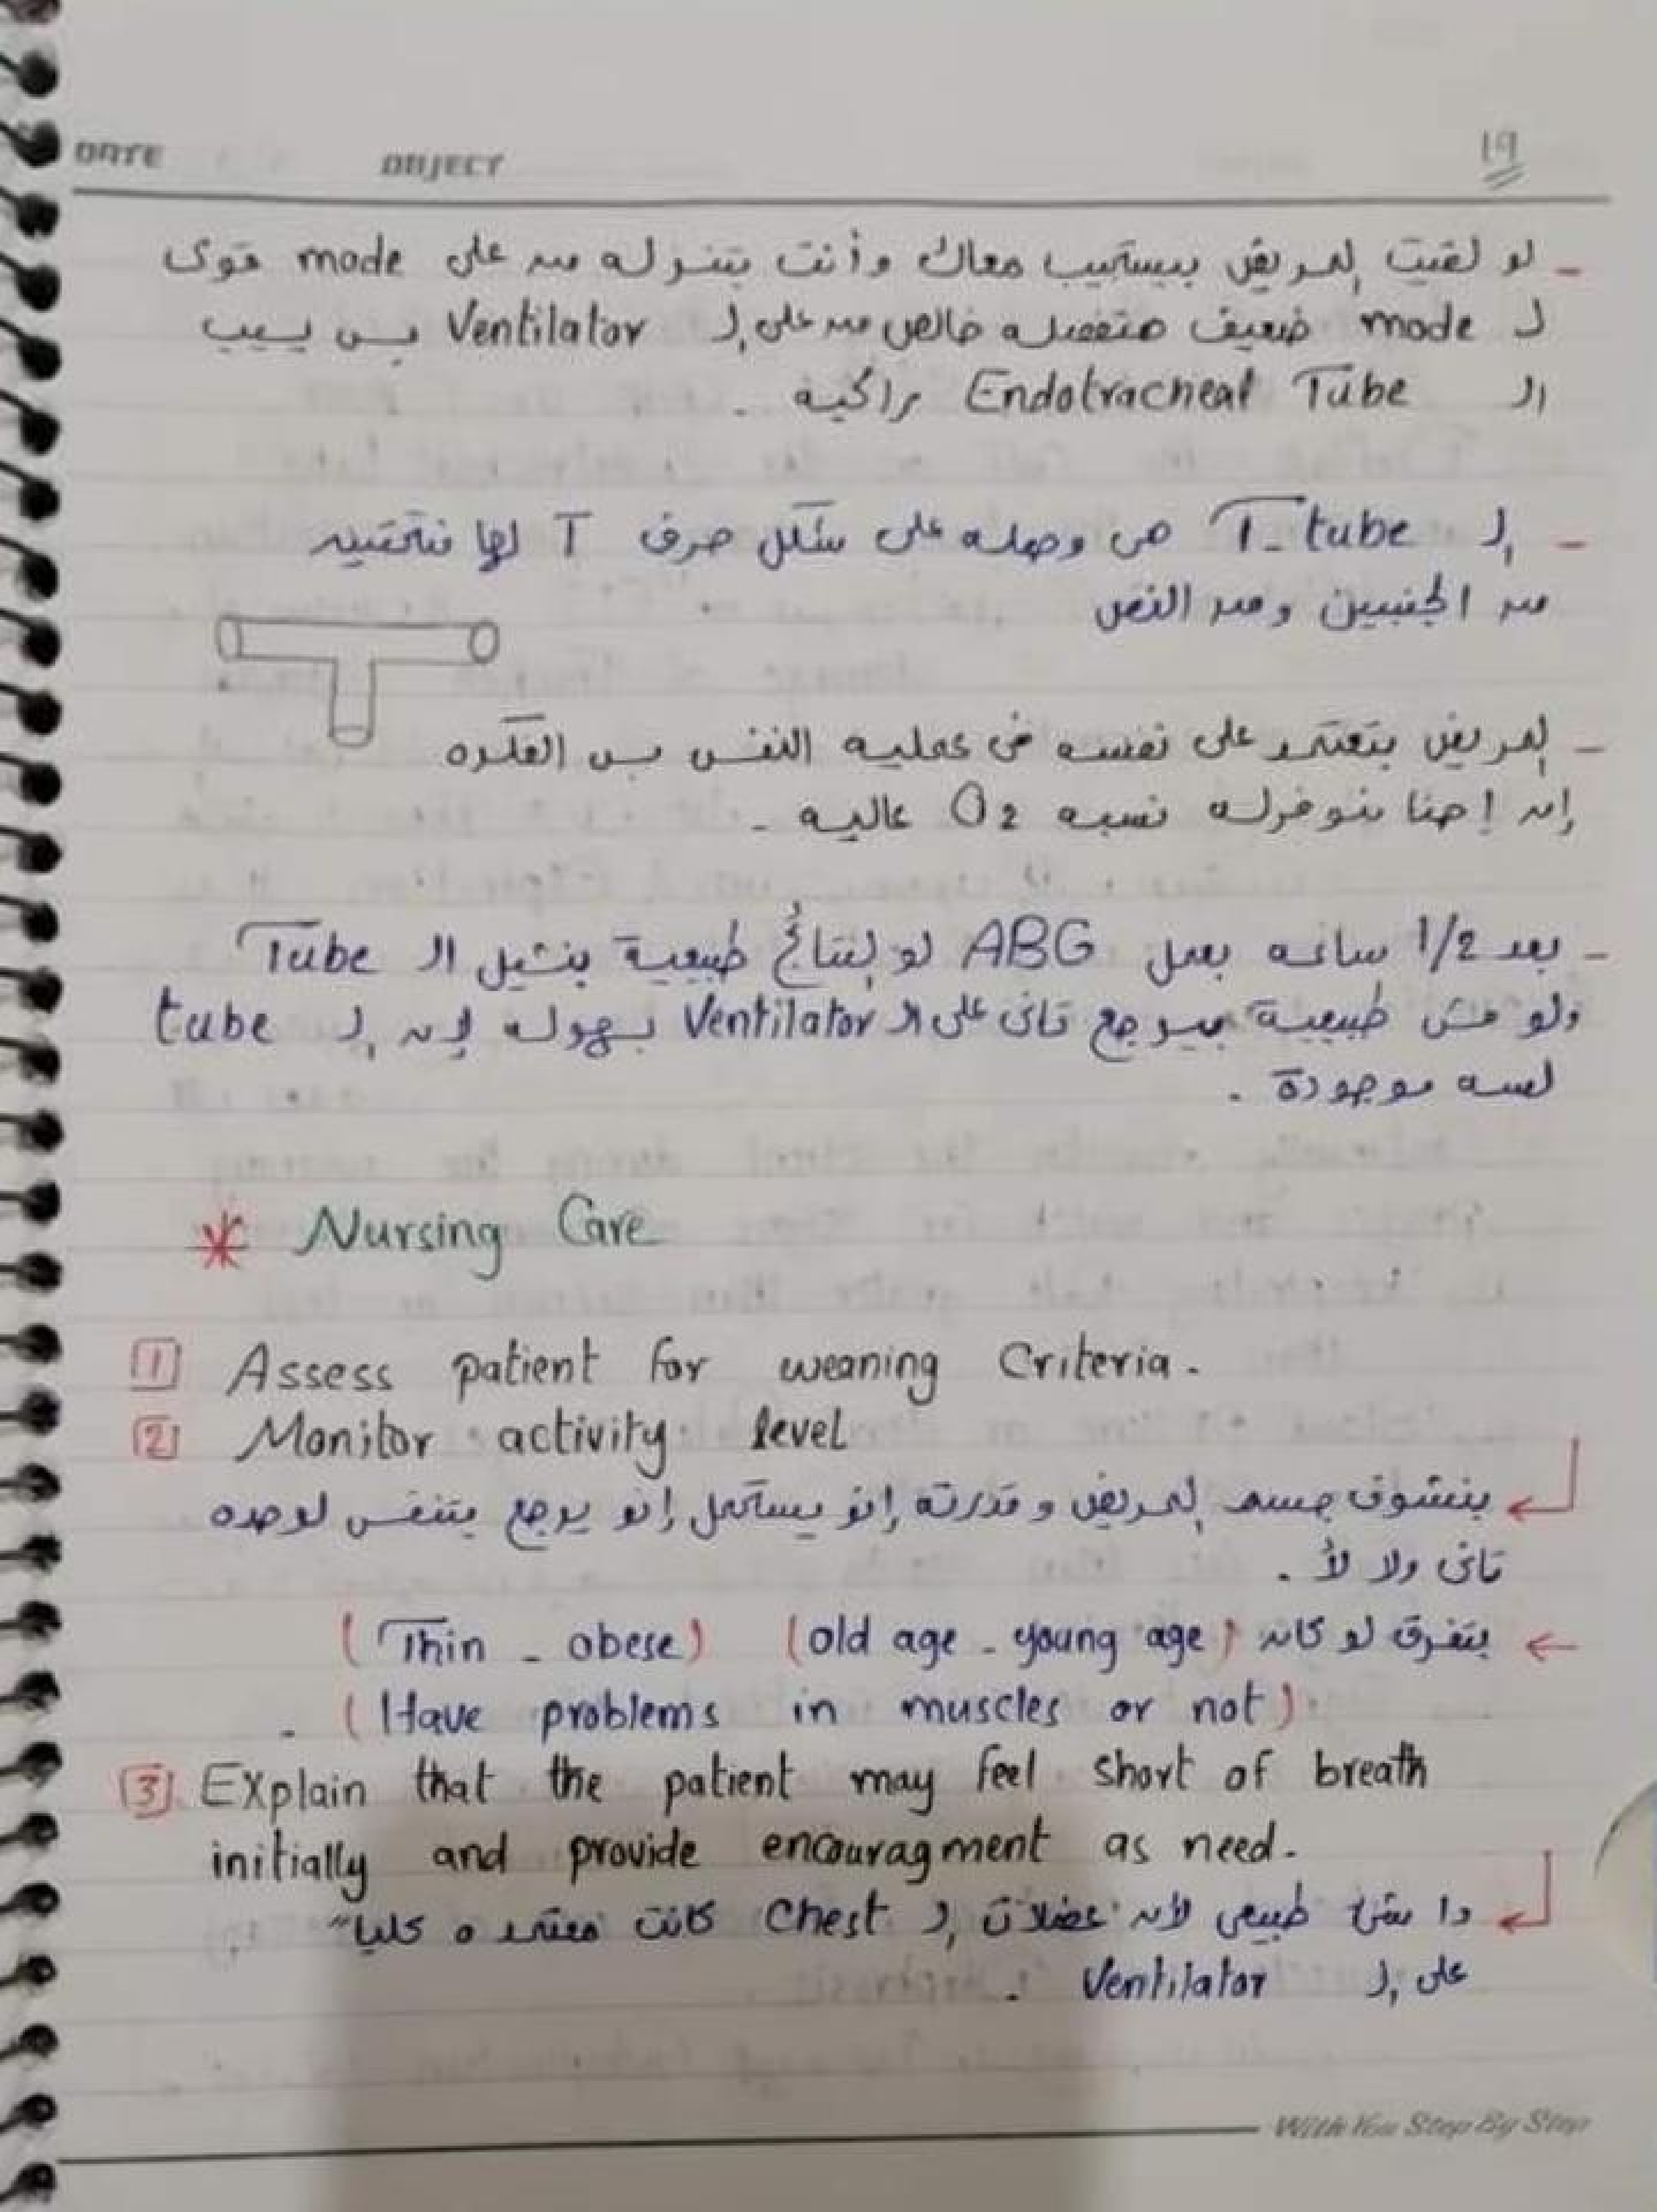 DATE OBJECT ١٩
- لو لقيت المريض بيستجيب معاك وأنت بتنزله من على mode قوى
لـ mode ضعيف هتفصله خالص من على الـ Ventilator بس يسيب
الـ Endotracheal Tube راكبه .
- الـ T-tube هى وصله على شكل حرف T لها فتحتين
من الجنبين ومن النص
- المريض بتعتمد على نفسه فى عمليه النفس بس الفكره
إن إحنا بنوفرله نسبه O2 عاليه .
- بعد 1/2 ساعه بعمل ABG لو النتائج طبيعية بنشيل الـ Tube
ولو مش طبيعية بيرجع تانى على الـ Ventilator بسهوله لإن الـ tube
لسه موجودة .
* Nursing Care
1 Assess patient for weaning Criteria.
2 Monitor activity level
بنشوف جسم المريض وقدرته إنو يستحمل إنو يرجع يتنفس لوحده
تانى ولا لأ .
← بتفرق لو كان (old age - young age) (Thin - obese)
(Have problems in muscles or not) .
3 Explain that the patient may feel short of breath
initially and provide encouragment as need.
دا شئ طبيعى لأن عضلات الـ Chest كانت معتمده كلياً
على الـ Ventilator .
With You Step By Step